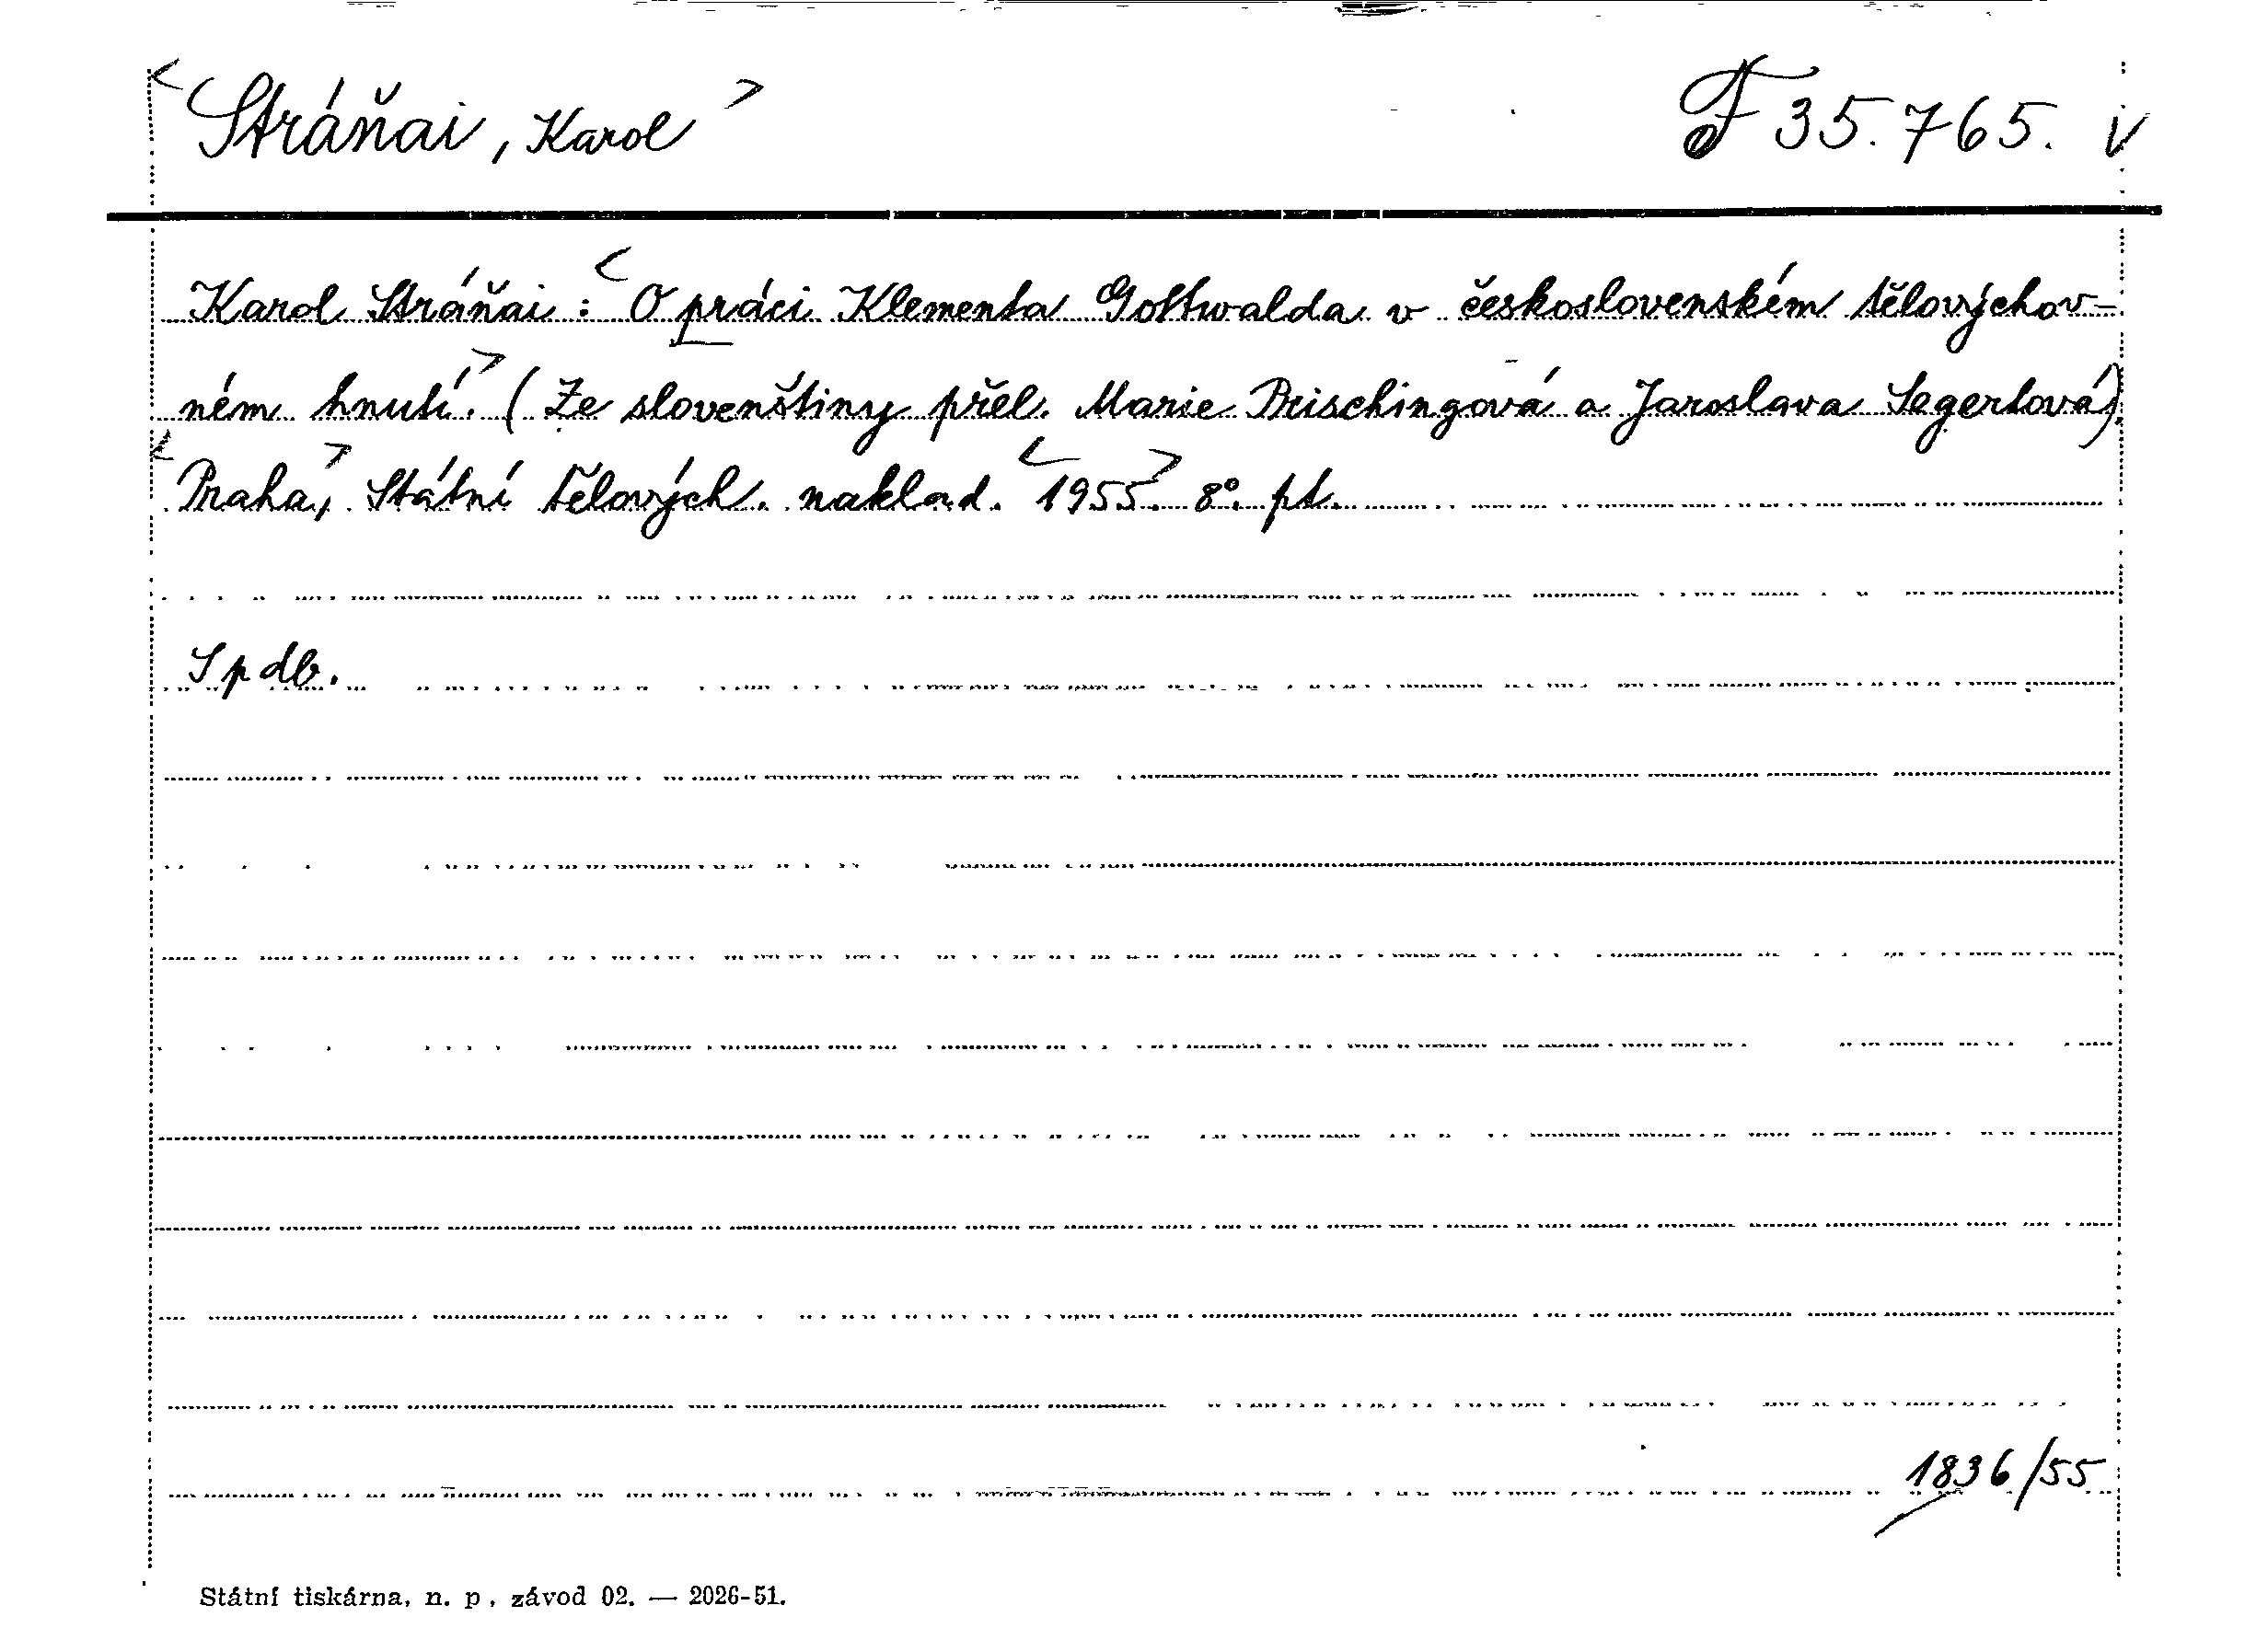 <Stráňai, Karol> F 35.765. V
Karol Stráňai: <O práci Klementa Gottwalda v československém tělovýchov-
ném hnutí.> (Ze slovenštiny přel. Marie Prischingová a Jaroslava Segertová)
<Praha,> Státní tělových. naklad. <1955.> 8°. pt.
Spdb.
1836/55
Státní tiskárna, n. p., závod 02. — 2026-51.